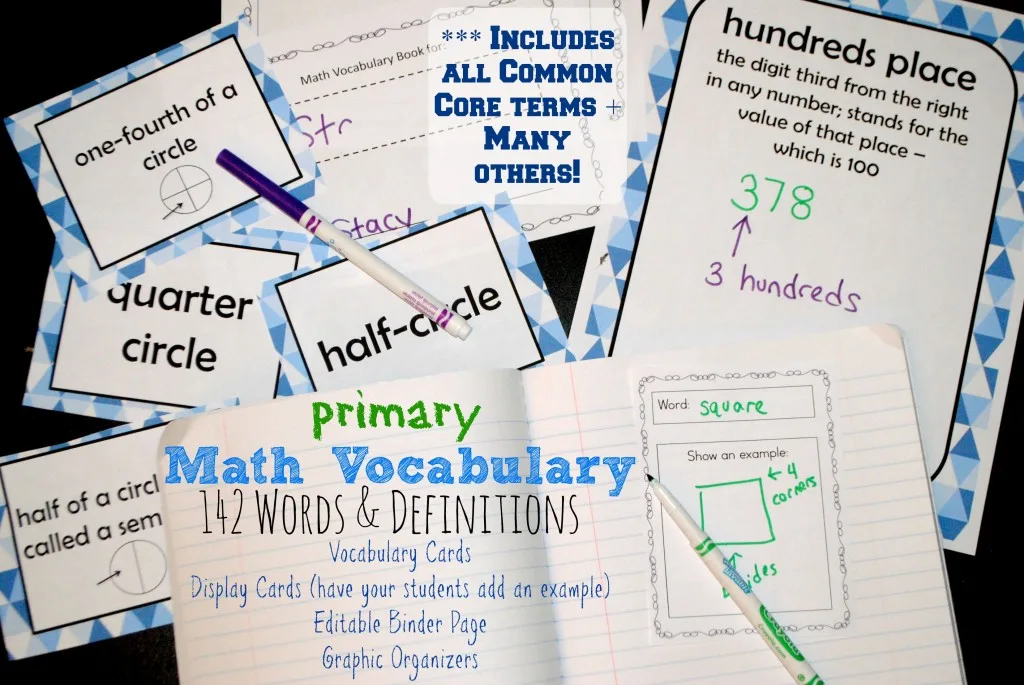 one-fourth of a
circle
Math Vocabulary Book for:
Str
Stacy
*** Includes
all Common
Core terms +
Many
others!
hundreds place
the digit third from the right
in any number; stands for the
value of that place –
which is 100
378
3 hundreds
quarter
circle
half-circle
half of a circl
called a sem
primary
Math Vocabulary
142 Words & Definitions
Vocabulary Cards
Display Cards (have your students add an example)
Editable Binder Page
Graphic Organizers
Word: square
Show an example:
4
corners
ides
Crayola